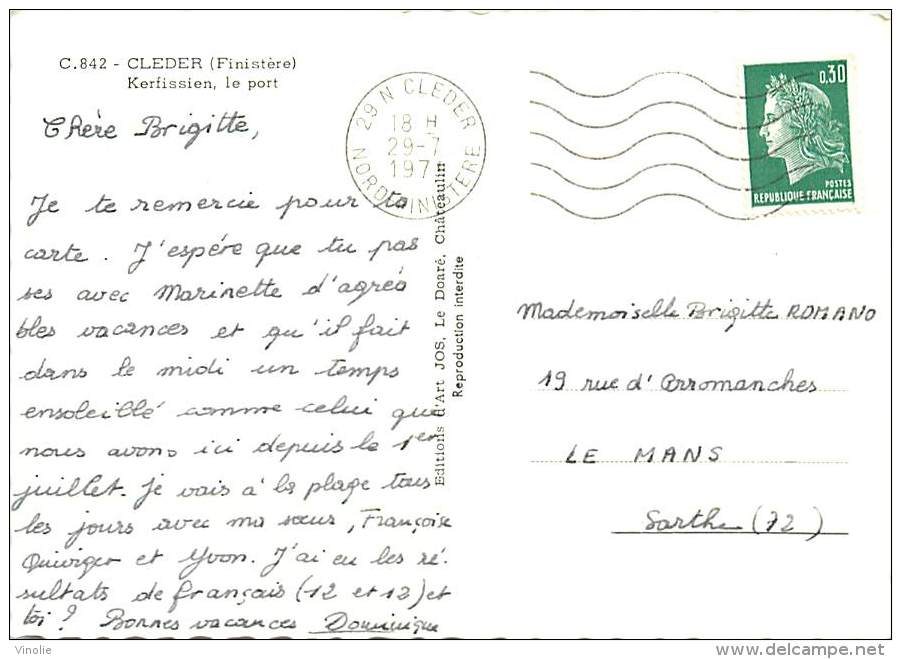 C.842 - CLEDER (Finistère)
Kerfissien, le port
29 N CLEDER
18 H
29-7
197
NORD FINISTERE
0,30
POSTES
REPUBLIQUE FRANÇAISE
Chère Brigitte,
Je te remercie pour ta
carte. J'espère que tu pas
ses avec Marinette d'agréa
bles vacances et qu'il fait
dans le midi un temps
ensoleillé comme celui que
nous avons ici depuis le 1er
juillet. Je vais à la plage tous
les jours avec ma sœur, Françoise
Quiviger et Yvon. J'ai eu les ré-
sultats de français (12 et 12) et
toi ? Bonnes vacances Dominique
Editions d'Art JOS, Le Doaré, Châteaulin
Reproduction interdite
Mademoiselle Brigitte ROMANO
19 rue d'Arromanches
LE MANS
Sarthe (72)
Vinolie
www.delcampe.net